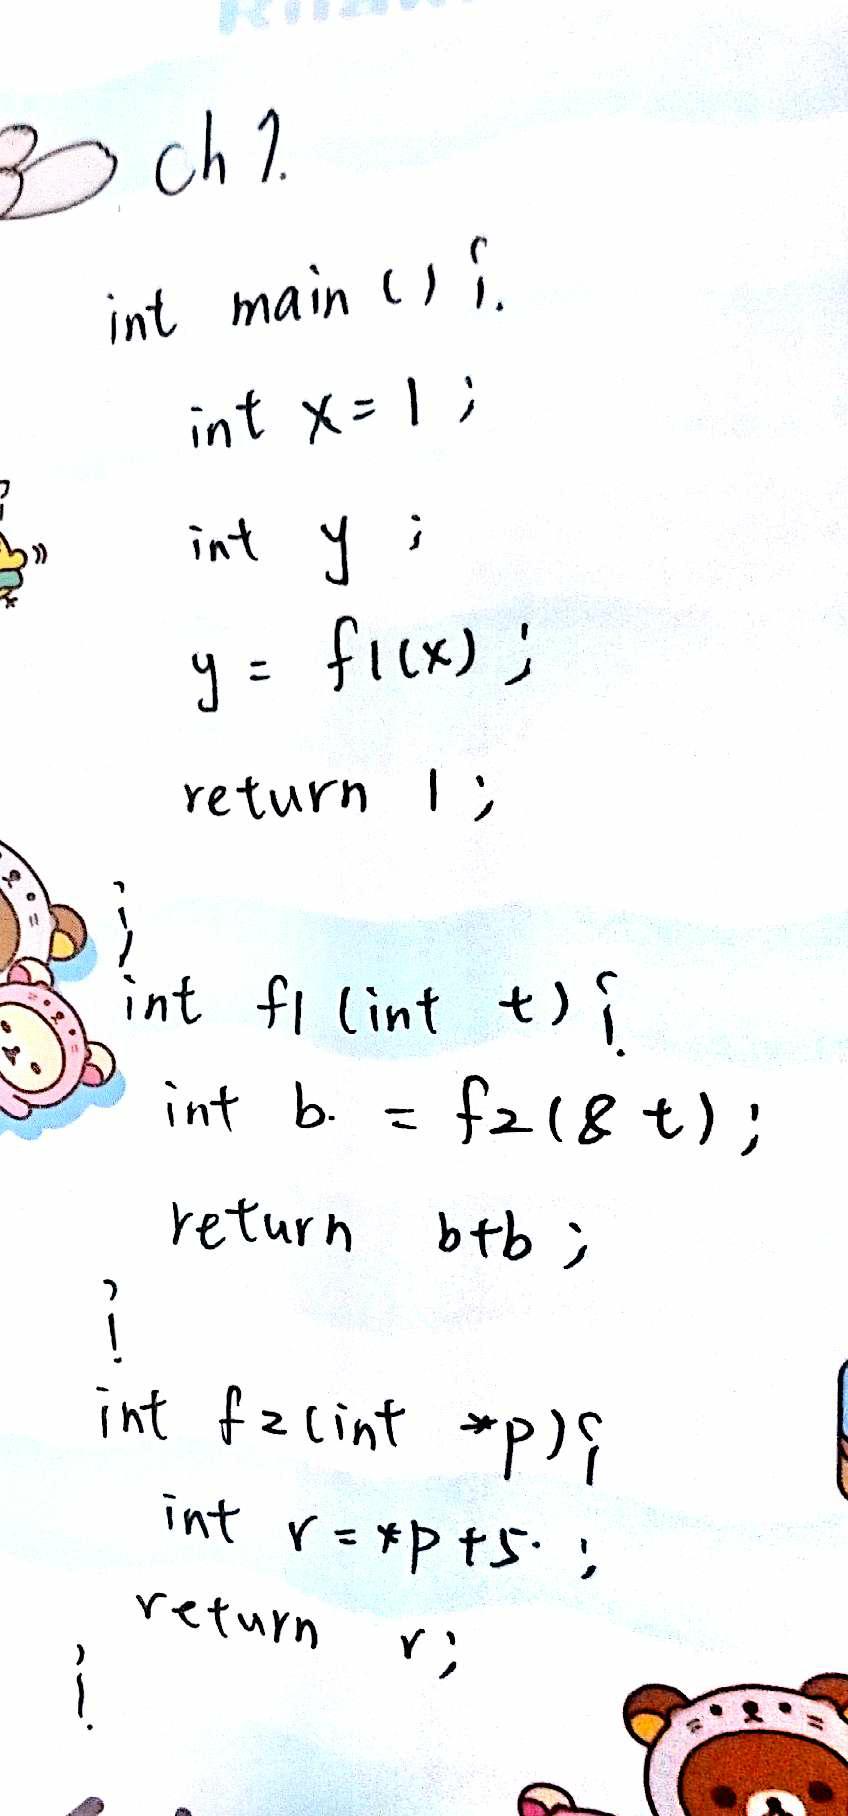 ch 1.
int main () {
int x = 1 ;
int y ;
y = f1(x) ;
return 1 ;
}
int f1 (int t) {
int b. = f2(& t) ;
return b+b ;
}
int f2(int *p) {
int r = *p +5. ;
return r;
}